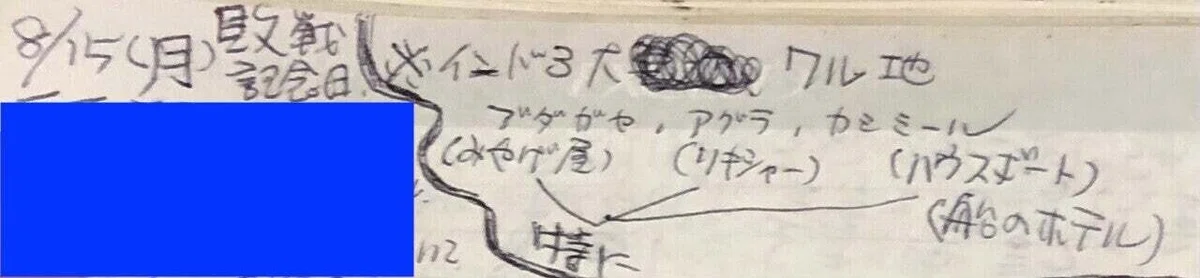 8/15(月)敗戦
記念日
※インド3大 ワル地
ブダガヤ,アグラ,カシミール
(みやげ屋) (リキシャー) (ハウスボート)
(船のホテル)
特に